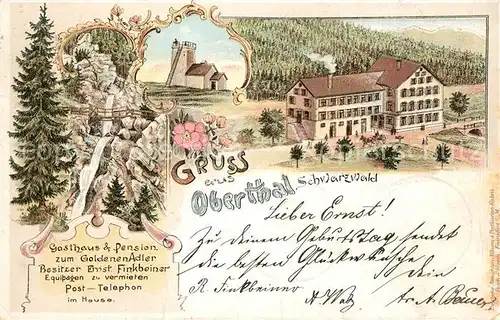 Gruss
aus
Oberthal Schwarzwald
Gasthaus & Pension
zum Goldenen Adler
Besitzer Ernst Finkbeiner
Equipagen zu vermieten
Post — Telephon
im Hause.
Lieber Ernst!
Zu deinem Geburtstag sendet
die besten Glückwünsche
Dein
R Finkbeiner